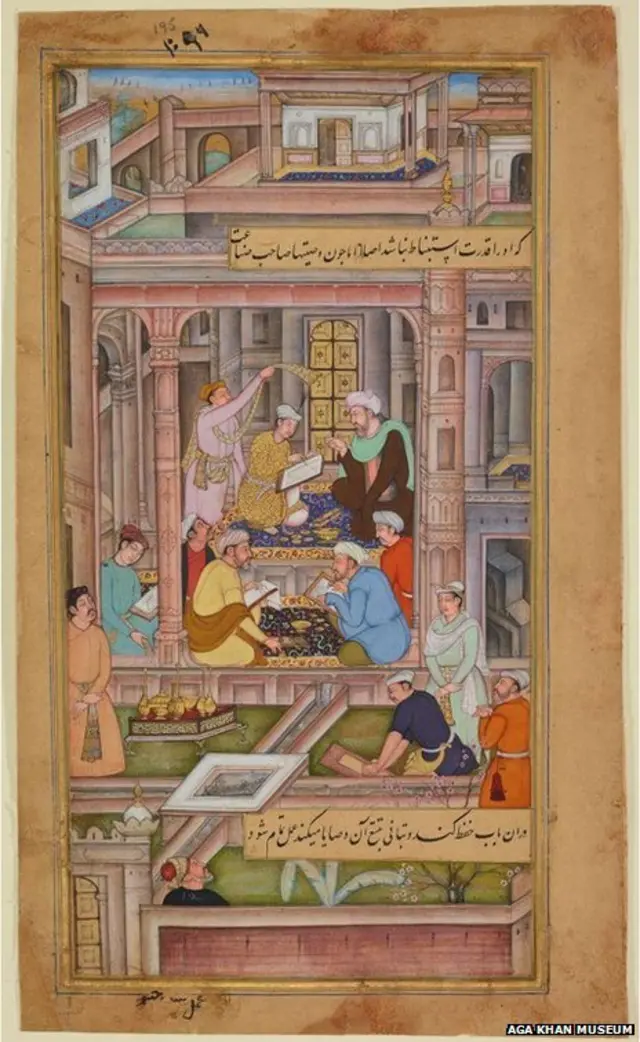 که او را قدرت استنباط نباشد اصلا اما چون وصیتها صاحب صناعت
دران باب حفظ کند و بتانی تتبع آن وصایا میکند عمل تمام شود
عمل
AGA KHAN MUSEUM